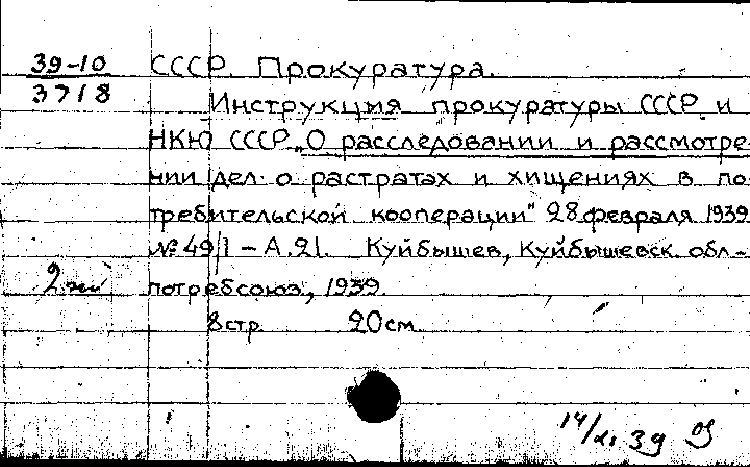 39-10 СССР. Прокуратура.
3718
Инструкция прокуратуры СССР и
НКЮ СССР „О расследовании и рассмотре-
нии дел о растратах и хищениях в по-
требительской кооперации" 28 февраля 1939
№ 49/1 - А.21. Куйбышев, Куйбышевск. обл-
потребсоюз, 1939.
8 стр. 20 см.